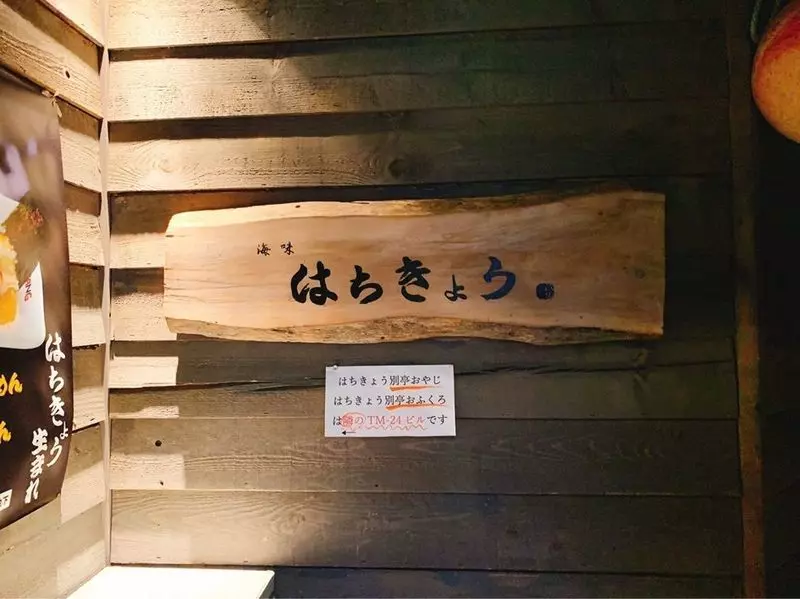 海味
はちきょう
はちきょう別亭おやじ
はちきょう別亭おふくろ
は隣のTM-24ビルです
はちきょう
生まれ